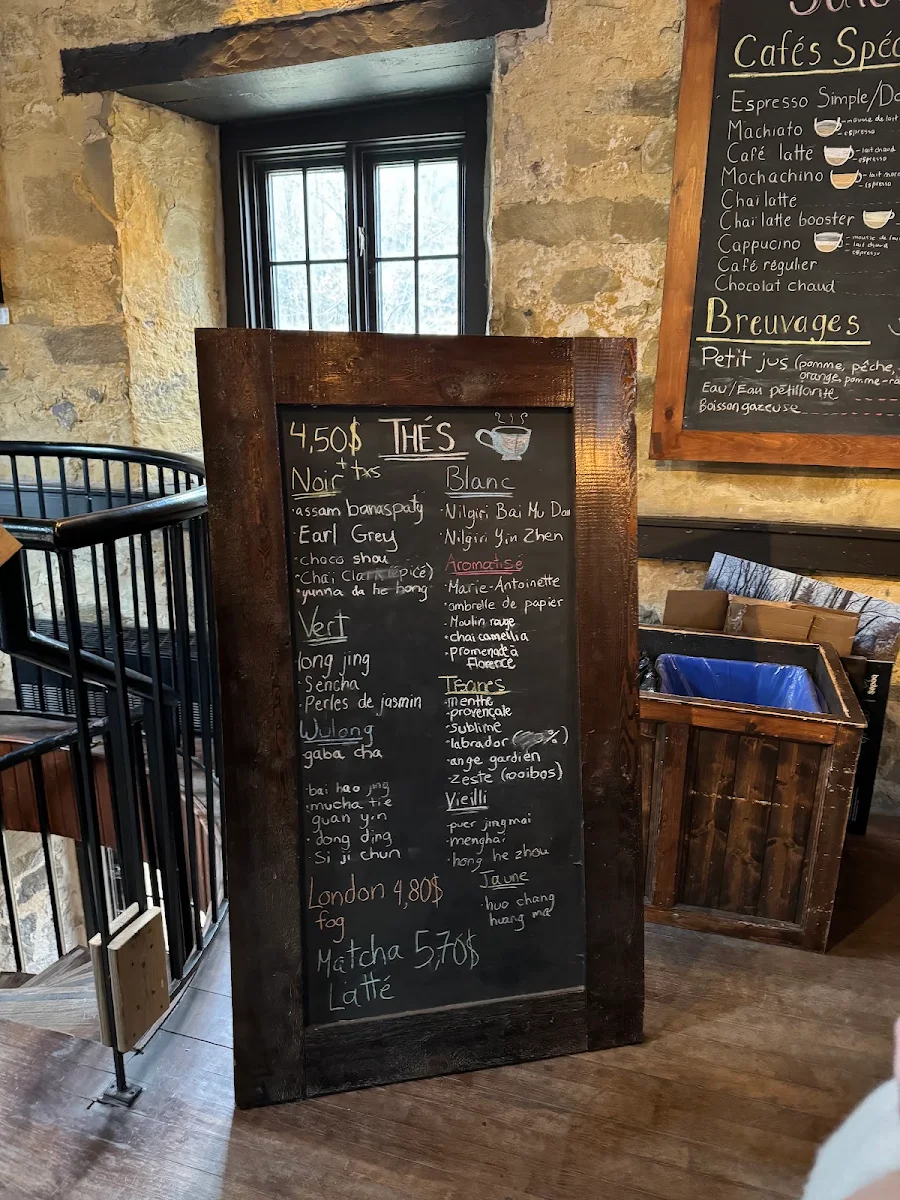 4,50$ THÉS
+ txs
Noir
·assam banaspaty
·Earl Grey
·choco shou
·Chai épicé)
·yunna da he hong
Vert
long jing
·Sencha
·Perles de jasmin
Wulong
gaba cha
·bai hao jing
·mucha tie
guan yin
·dong ding
·Si ji chun
London 4,80$
fog
Matcha 5,70$
Latté
Blanc
·Nilgiri Bai Mu Dan
·Nilgiri Yin Zhen
Aromatisé
·Marie-Antoinette
·ombrelle de papier
·Moulin rouge
·chai camellia
·promenade à
Florence
Tisanes
·menthe
·provençale
·sublime
·labrador
·ange gardien
·zeste (rooibos)
Vieilli
·puer jingmai
·menghai
·hong he zhou
Jaune
·huo chang
huang ma
Cafés Spéc
Espresso Simple/Do
Machiato -mousse de lait
-espresso
Café latte -lait chaud
-espresso
Mochachino -lait
-espresso
Chai latte
Chai latte booster
Cappucino -mousse de lai
-lait chaud
espresso
Café régulier
Chocolat chaud
Breuvages
Petit jus (pomme, pêche,
orange, pomme-ra
Eau/Eau pétillante
Boisson gazeuse